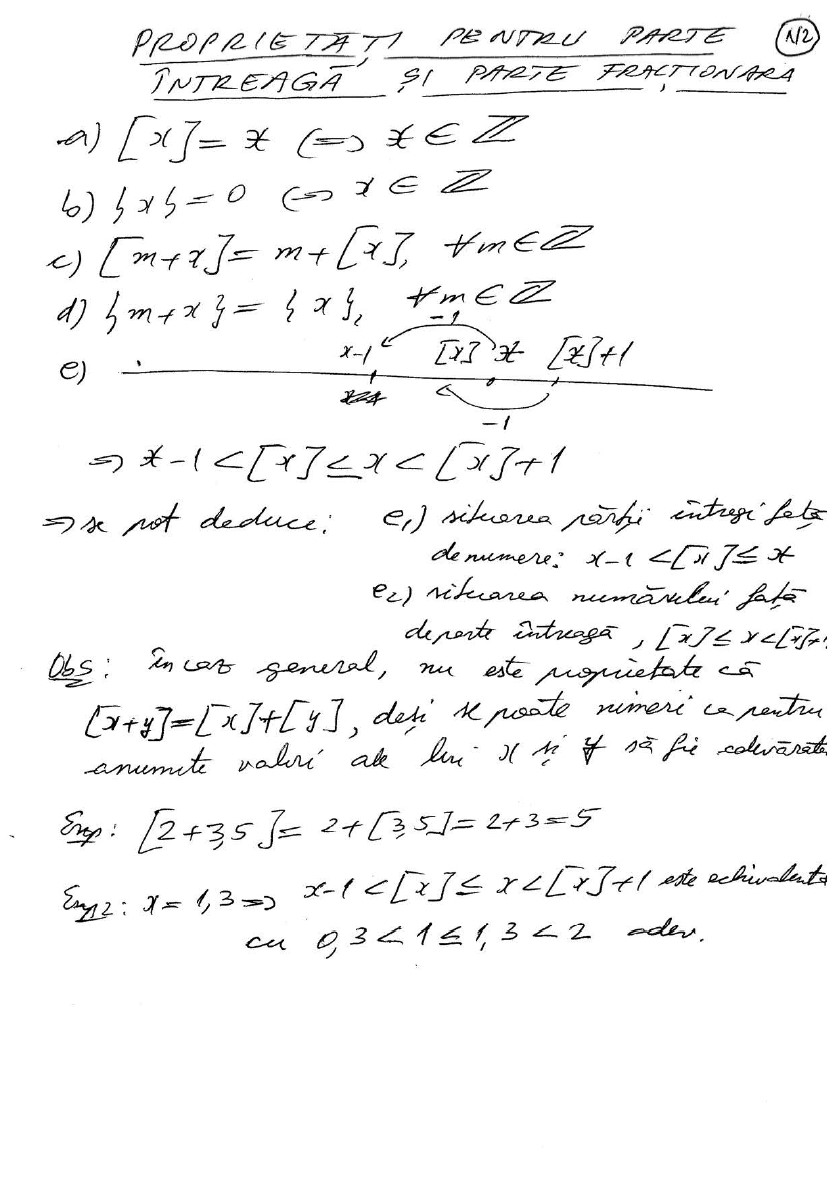 PROPRIETĂȚI PENTRU PARTE N2
ÎNTREAGĂ ȘI PARTE FRACȚIONARA
a) [x]=x ⇔ x∈ℤ
b) {x}=0 ⇔ x∈ℤ
c) [m+x]=m+[x], ∀m∈ℤ
d) {m+x}={x}, ∀m∈ℤ
-1
x-1 [x] x [x]+1
e)
-1
⇒ x-1<[x]≤x<[x]+1
⇒ se pot deduce: e₁) situarea părții întregi față
de numere: x-1<[x]≤x
e₂) situarea numărului față
de parte întreagă, [x]≤x<[x]+1
Obs: în caz general, nu este proprietate că
[x+y]=[x]+[y], deși se poate nimeri ca pentru
anumite valori ale lui x și y să fie adevărate
Exp: [2+3,5]=2+[3,5]=2+3=5
Exp2: x=1,3⇒ x-1<[x]≤x<[x]+1 este echivalentă
cu 0,3<1≤1,3<2 adev.